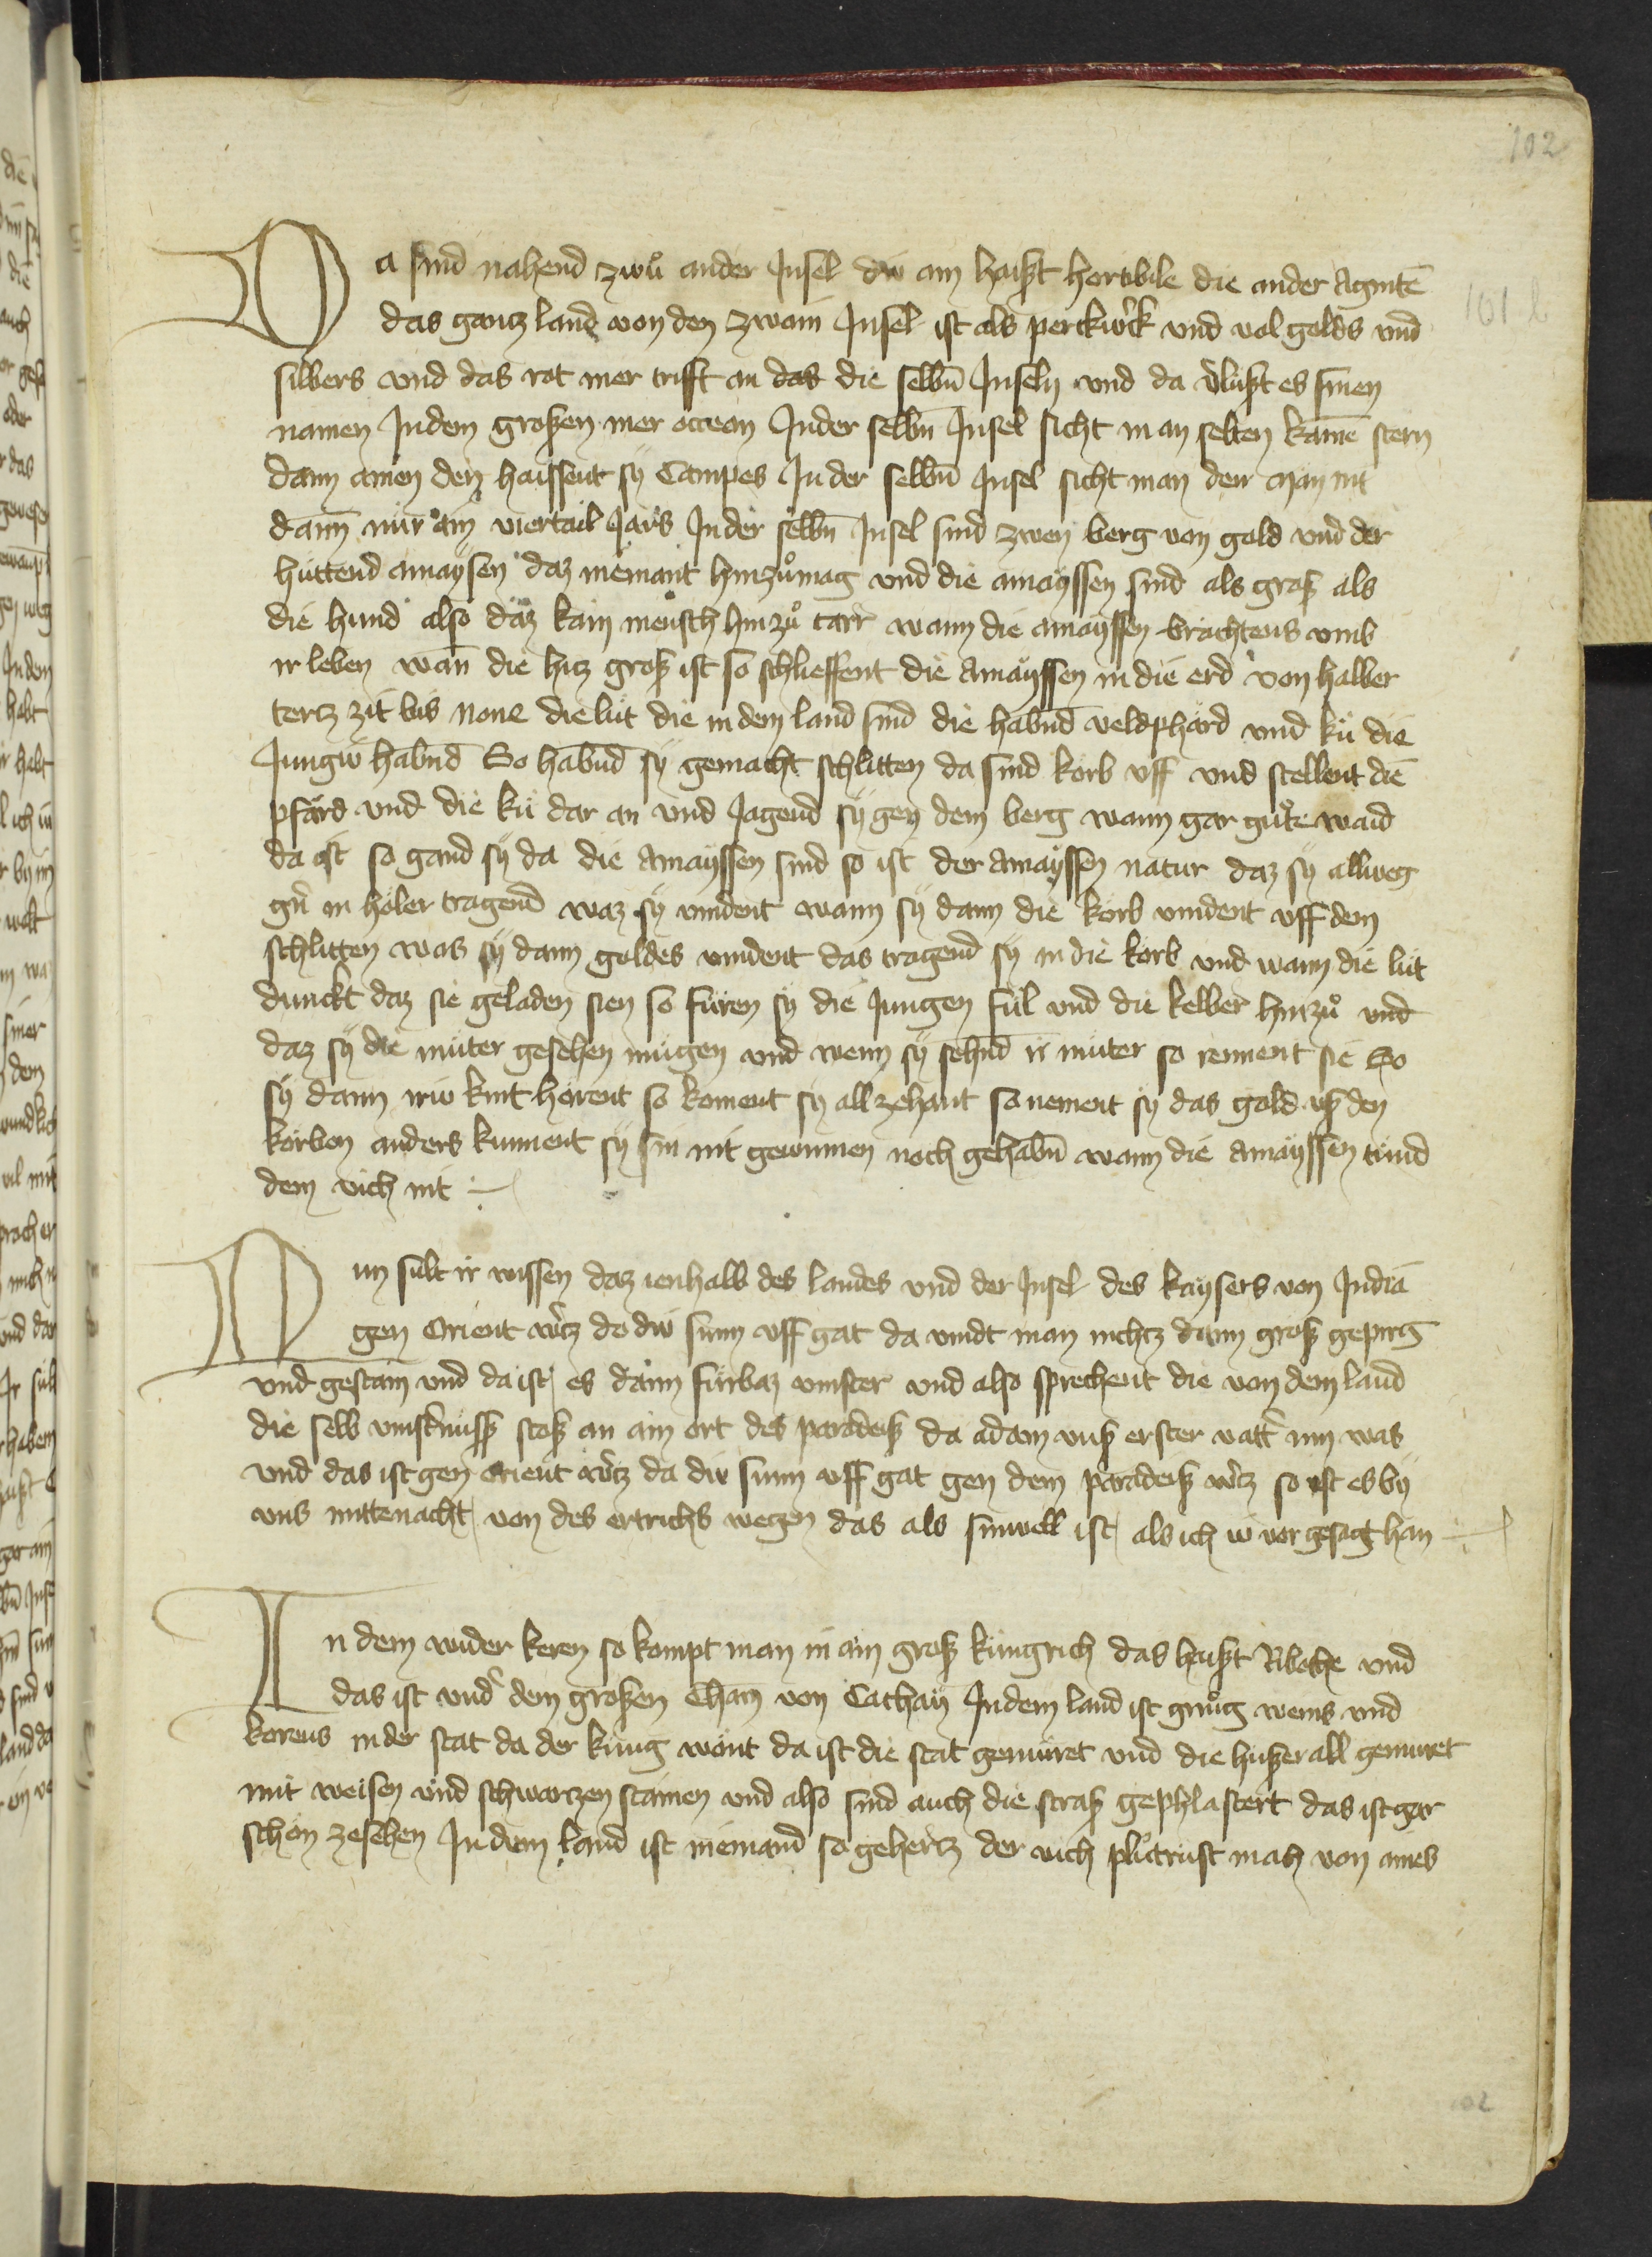 102
Da sind nahend zwuͦ ander Insel diw ain haist horribile die ander Agintē
das gantz land von den zwain Insel ist als perckwerck vnd vol golds vnd
101 b
silbers vnd das rot mer trifft an das die selbn̄ Inseln vnd da v̓lust es sinen
namen In dem großen mer occean In der selbn̄ Insel sicht man selten kainē stern
dann ainen den haissent sy Campes In der selbn̄ Insel sicht man den man nit
dann nur ain viertail Jars In der selbn̄ Insel sind zwen berg von gold vnd der
hüttend amaysen daz niemant hinzuͦ mag vnd die amayssen sind als groß als
die hund also daz kain mensch hinzuͦ tarr wann die amayssen brachtens vmb
ir leben wan̄ die hitz groß ist so schlieffent die Amayssen in die erd von halber
tertz zit bis none die lüt die in dem land sind die habnd veldphärd vnd kü die
Jungiw habnd So habnd sy gemacht schlitten da sind korb vff vnd stellent die
pfärd vnd die kü dar an vnd Jagend sy gen dem berg wann gar guͦte waid
da ist so gand sy da die Amayssen sind so ist der amayssen natur daz sy allweg
gn̄ in höler tragend waz sy vindent wann sy dann die körb vindent vff dem
schlitten was sy dann goldes vindent das tragend sy in die körb vnd wann die lüt
dunckt daz sie geladen sien so füren sy die Jungen fül vnd die kelber hinzuͦ vnd
daz sy die müter gesehen mügen vnd wenn sy sehnd ir müter so rennent sie So
sy dann iriw kint hörent so koment sy all zehant so nement sy das gold vß den
körben anders kunnent sy sin nit gewinnen noch gehabn̄ wann die Amayssen tünd
dem vich nit
Nun sült ir wissen daz ienhalb des landes vnd der Insel des kaysers von Indiā
gen Orient wertz do diw sunn vff gat da vindt man nichtz dann groß gepirg
vnd gestain vnd da ist es dann fürbaz vinster vnd also sprechent die von dem land
die selb vinsternüss stoß an ain ort des paradeiß da adam vnß erster vatter inn was
vnd das ist gen Orient wertz da diw sunn vff gat gen dem paradeiß wertz so ist es by
vns mittenacht von des ertrichs wegen das als sinwell ist als ich iw vor gesagt han
In dem wider keren so kompt man in ain groß küngrich das haist Riboche vnd
das ist vnder dem großen Cham von Cathay In dem land ist gnuͦg weins vnd
korens in der stat da der küng wont da ist die stat gemuret vnd die hüßer all gemuret
mit weisen vnd schwarzen stainen vnd also sind auch die straß gephlastert das ist gar
schön zesehen In dem land ist niemand so gehertz der vich pluͦtrust mach von ains
102